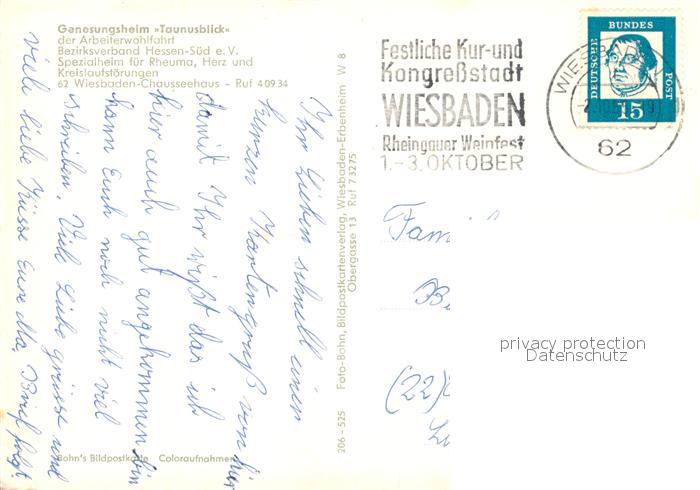 Genesungsheim »Taunusblick«
der Arbeiterwohlfahrt
Bezirksverband Hessen-Süd e. V.
Spezialheim für Rheuma, Herz und
Kreislaufstörungen
62 Wiesbaden-Chausseehaus - Ruf 4 09 34
Ihr Lieben schnell einen
kurzen Kartengruß von hier
damit Ihr wißt das ich
hier auch gut angekommen bin
kann Euch noch nicht viel
schreiben. Viele Liebe grüsse und
viele liebe Küsse Eure Ma, Brief folgt
Bohn's Bildpostkarte Coloraufnahmen
206 - 525 Foto-Bohn, Bildpostkartenverlag, Wiesbaden-Erbenheim W 8
Obergasse 13 Ruf 7 32 75
Festliche Kur-und
Kongreßstadt
WIESBADEN
Rheingauer Weinfest
1.-3. OKTOBER
WIESBADEN
62
DEUTSCHE BUNDESPOST
15
Fam
(22)
privacy protection
Datenschutz